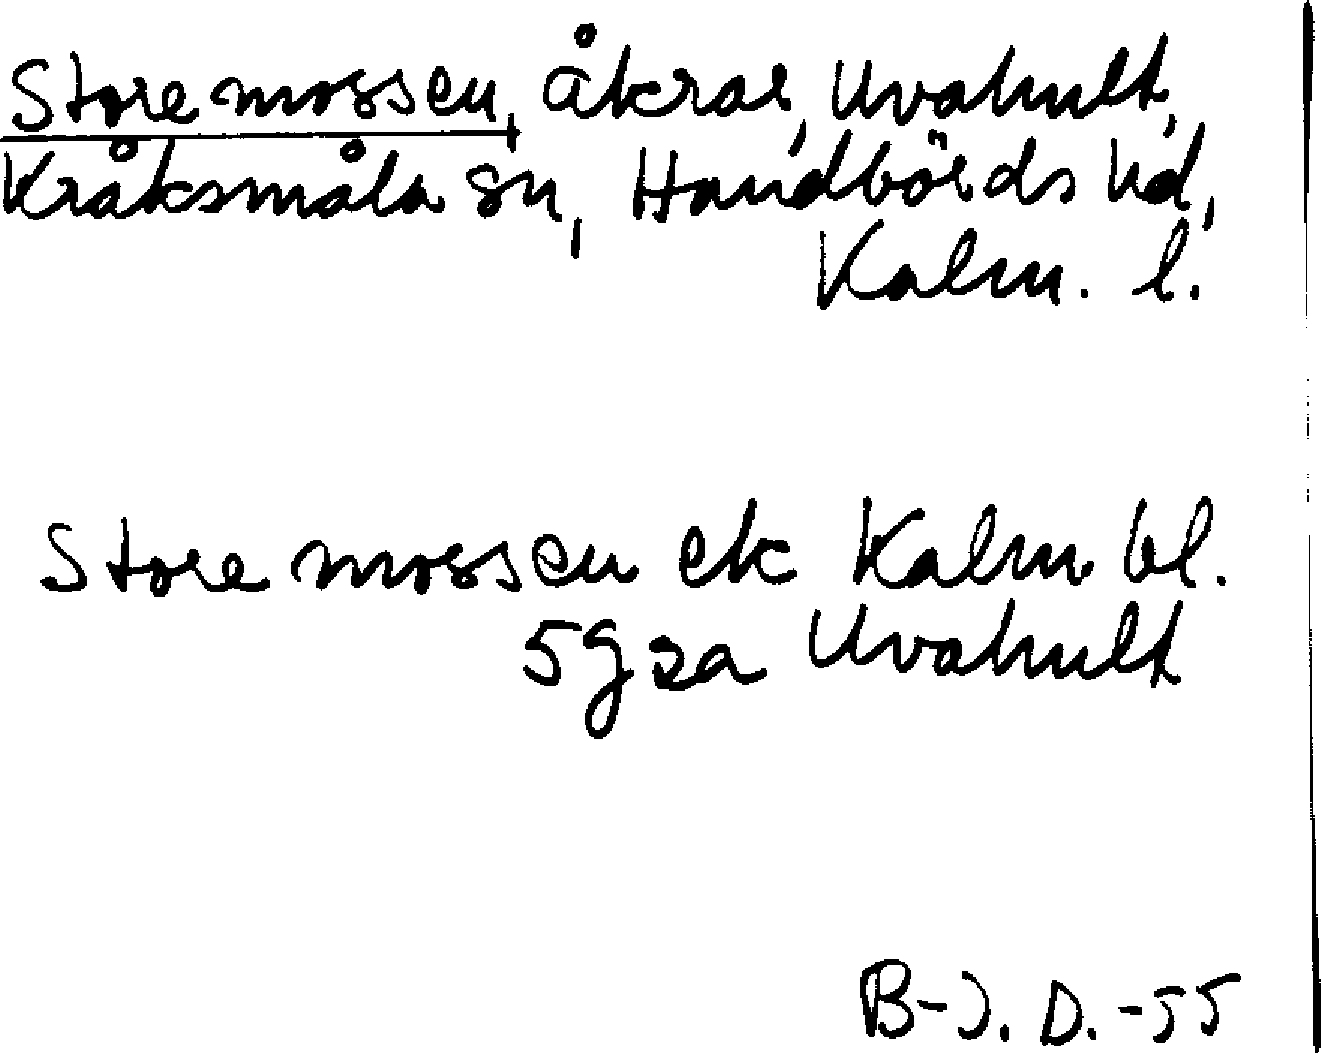 Storemossen, åkrar, Uvahult,
Kråksmåla sn, Handbörds hd,
Kalm. l.
Storemossen ek Kalm bl.
5g sa Uvahult
B-J. D. -55